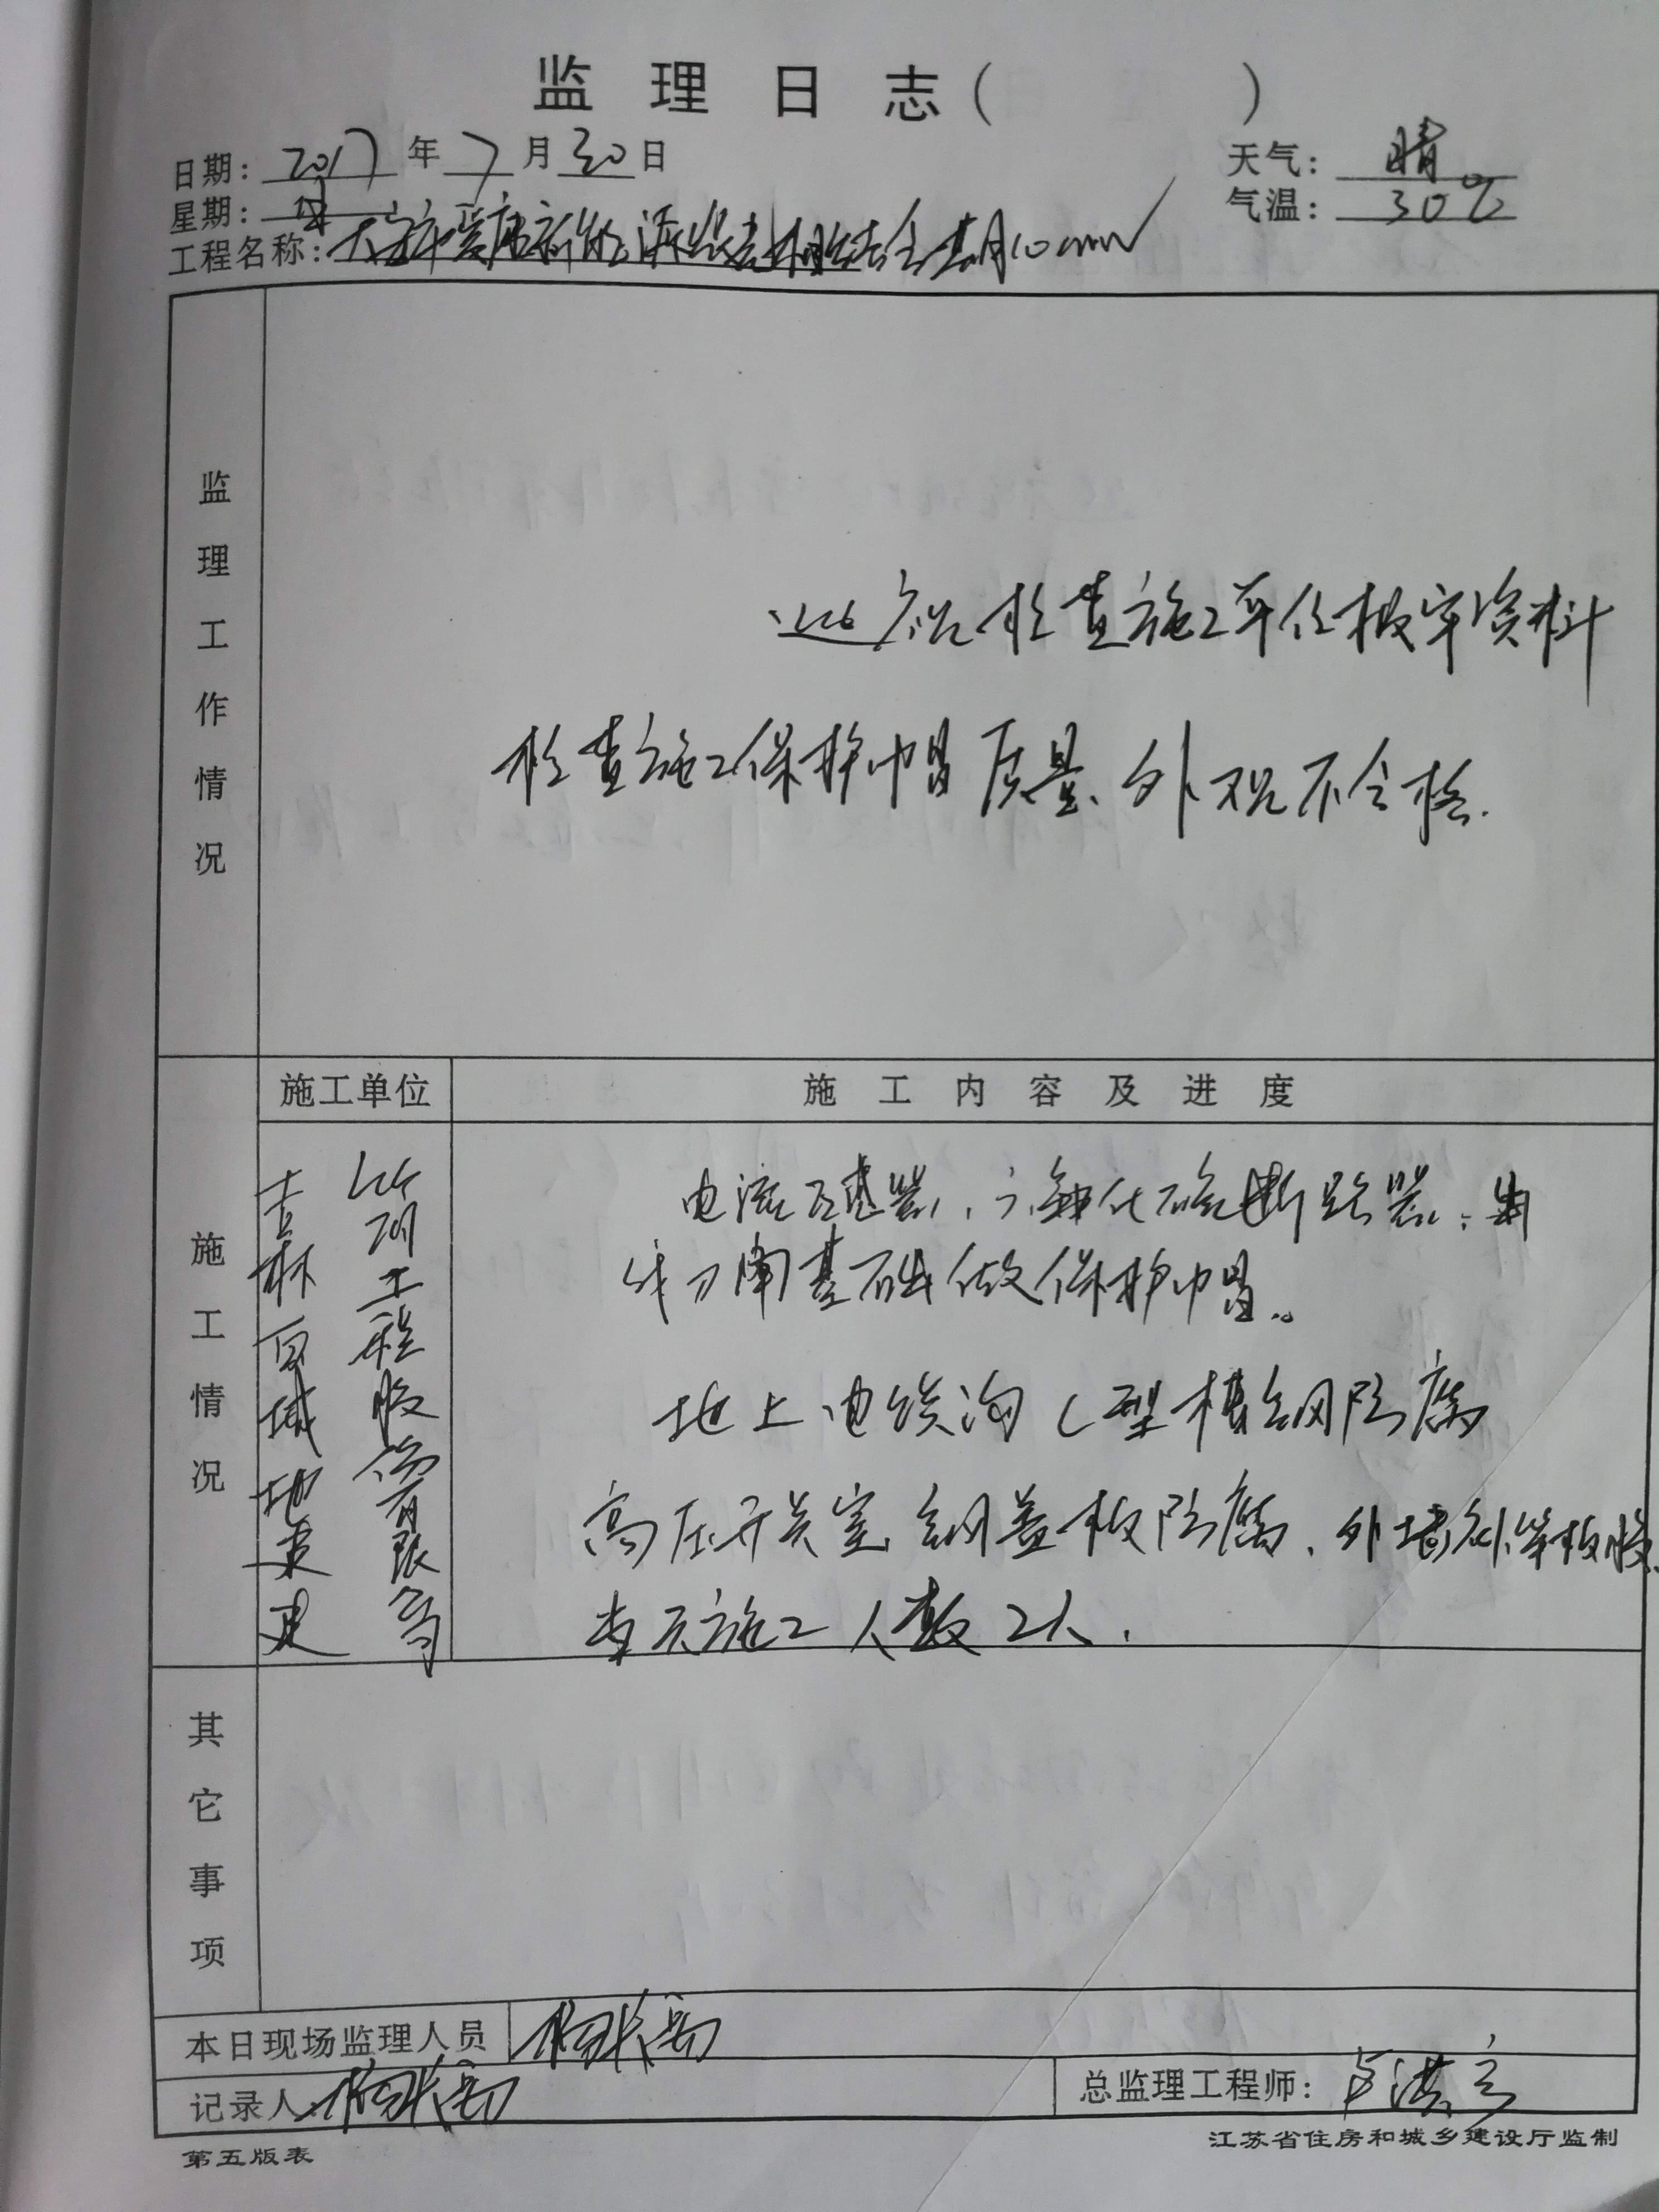 监理日志( )
日期: 2017 年 7 月 30 日
天气: 晴
星期: 日
气温: 30℃
工程名称: 10mw
监理工作情况
巡视检查施工单位报审资料
检查施工保护帽质量、外观不合格.
施工情况
施工单位
施工内容及进度
吉林百城地建
工程股份有限公司
电流互感器、六氟化硫断路器、出
线刀闸基础做保护帽。
地上电缆沟C型槽钢防腐
高压开关室钢盖板防腐、外墙
当天施工人数2人.
其它事项
本日现场监理人员
记录人:
总监理工程师:
第五版表
江苏省住房和城乡建设厅监制